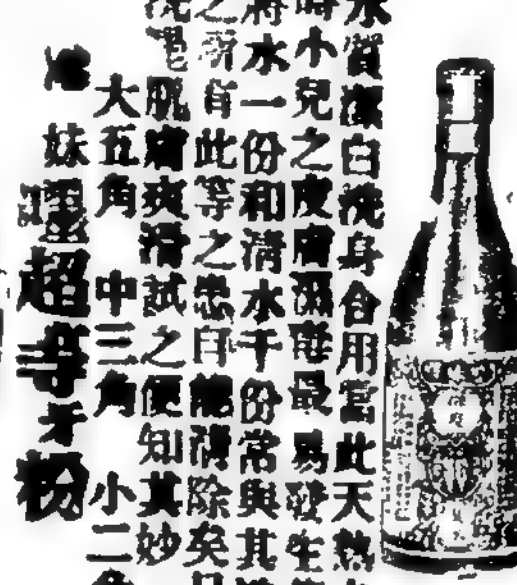 水質潔白洗身合用當此天熱
時小兒之皮膚濕毒最易發生
將水一份和清水千份常與其
之所有此等之患自能清除矣且
洗浴肌膚爽滑試之便知其妙
大五角 中三角 小二角
妹嚜超等牙粉